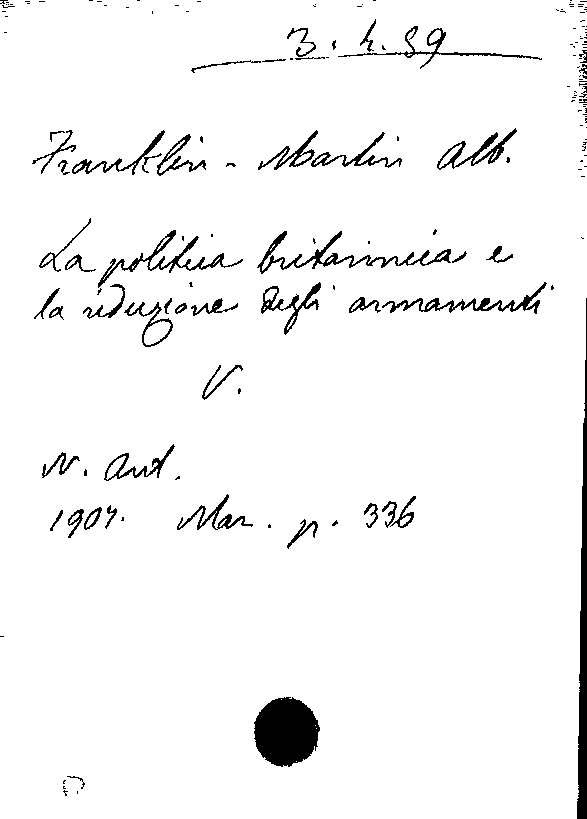 3. 4. 39
Franklin - Martin Alb.
La politica britannica e
la riduzione degli armamenti
V.
N. Ant.
1907. Mar. p. 336